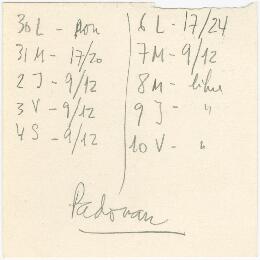 30 L - non
31 M - 17/20
2 J - 9/12
3 V - 9/12
4 S - 9/12
6 L - 17/24
7 M - 9/12
8 M - libre
9 J - "
10 V - "
Padovan